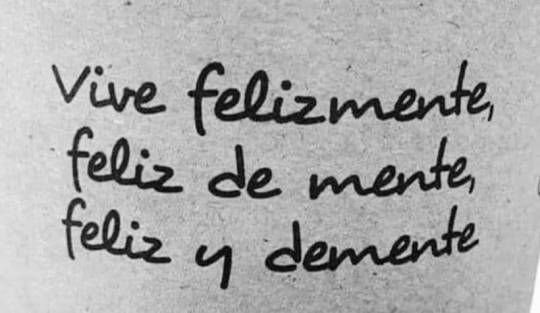 Vive felizmente,
feliz de mente,
feliz y demente